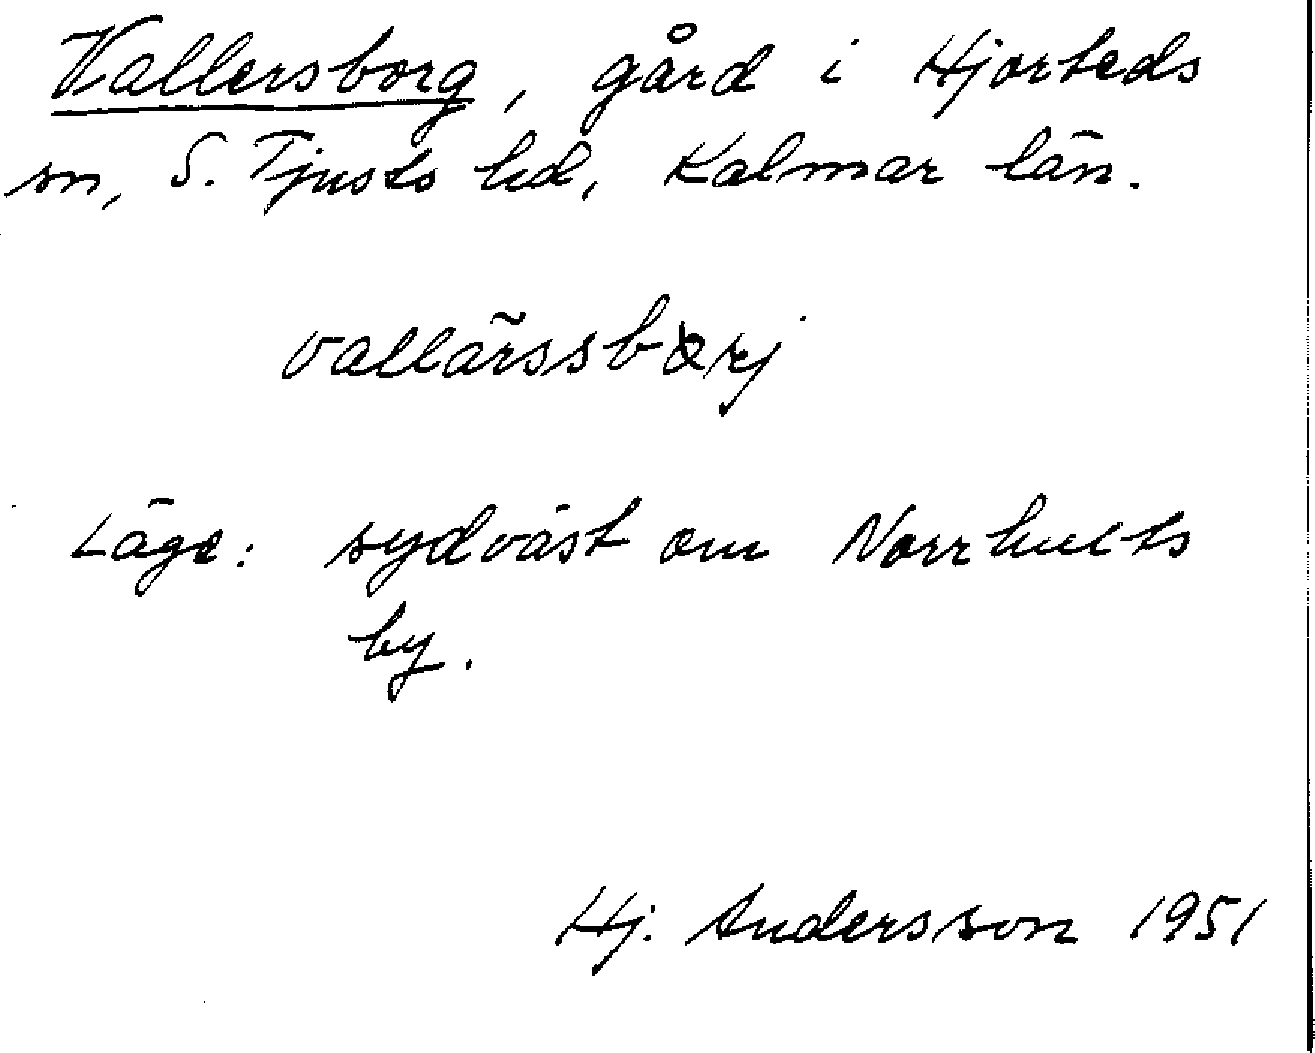 Vallersborg, gård i Hjorteds
sn, S. Tjusts hd, Kalmar län.
vallärssbårj
Läge: sydväst om Norrhults
by.
Hj. Andersson 1951